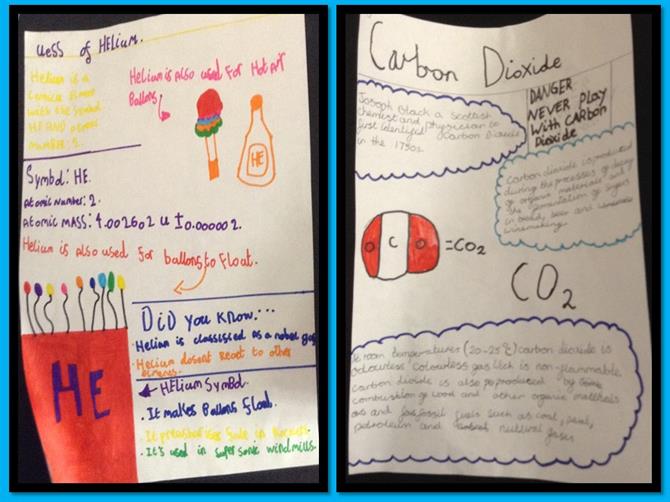 uess of Helium.
Helium is a
with the symbol
HE AND atomic
number: 2.
Helium is also used for Hot Air
Ballons.
HE
Symbol: HE.
Atomic Number: 2.
Atomic MASS: 4.002602 u ± 0.000002.
Helium is also used for ballons to Float.
HE
DiD you know....
Helium is classised as a nobel gas
Helium dosent React to other
← HElium Symbol.
• It makes Ballons Float.
• It's used in super sonic windmills.
Carbon Dioxide
DANGER
NEVER PLAY
With CARBON
Dioxide
Joseph Black a Scottish
chemist and physician to
first identified Carbon Dioxide
in the 1750s.
Carbon dioxide is produced
during the processes of decay
of organic materials and
the fermentation of sugars
in bread, beer and
winemaking.
O C O =CO2
CO2
At room temperatures (20-25°C) carbon dioxide is
odourless colourless gas Which is non-flammable
carbon dioxide is also produced by
combustion of wood and other organic materials
and fossil fuels such as coal, peat,
petroleum and natural gases